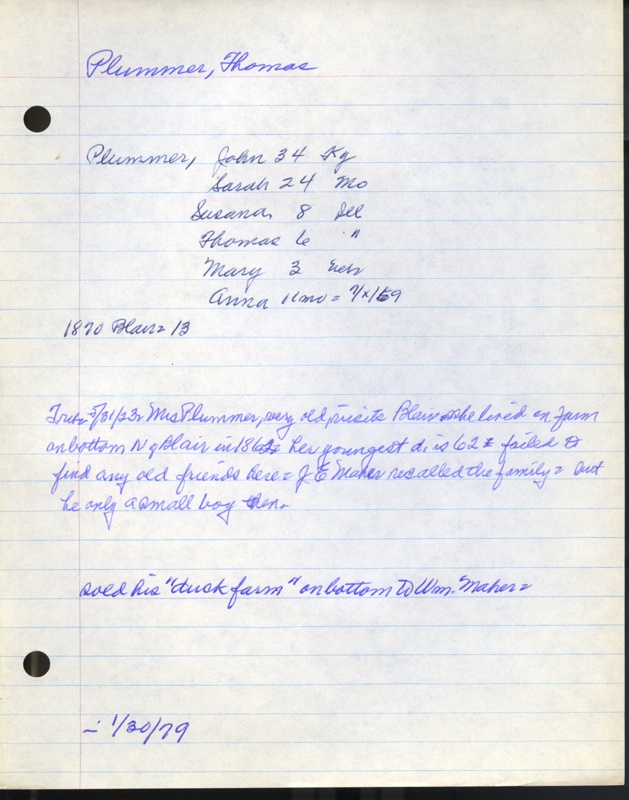 Plummer, Thomas
Plummer, John 34 Ky
Sarah 24 Mo
Susanah 8 Ill
Thomas 6 "
Mary 3 Neb
Anna 11mo = 7/x/69
1870 Blair = 13
Trib 5/31/23 = Mrs Plummer, very old, visits Blair = she lived on farm
on bottom N of Blair in 1862 = her youngest d. is 62 = failed to
find any old friends here = J E Maher recalled the family = but
he only a small boy then.
sold his "dusk farm" on bottom to Wm. Maher =
- 1/30/79